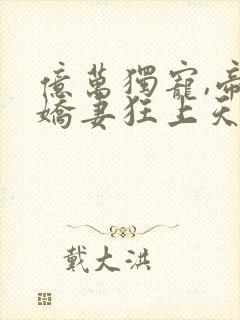 億萬獨寵,帝
嬌妻狂上天
戴大洪